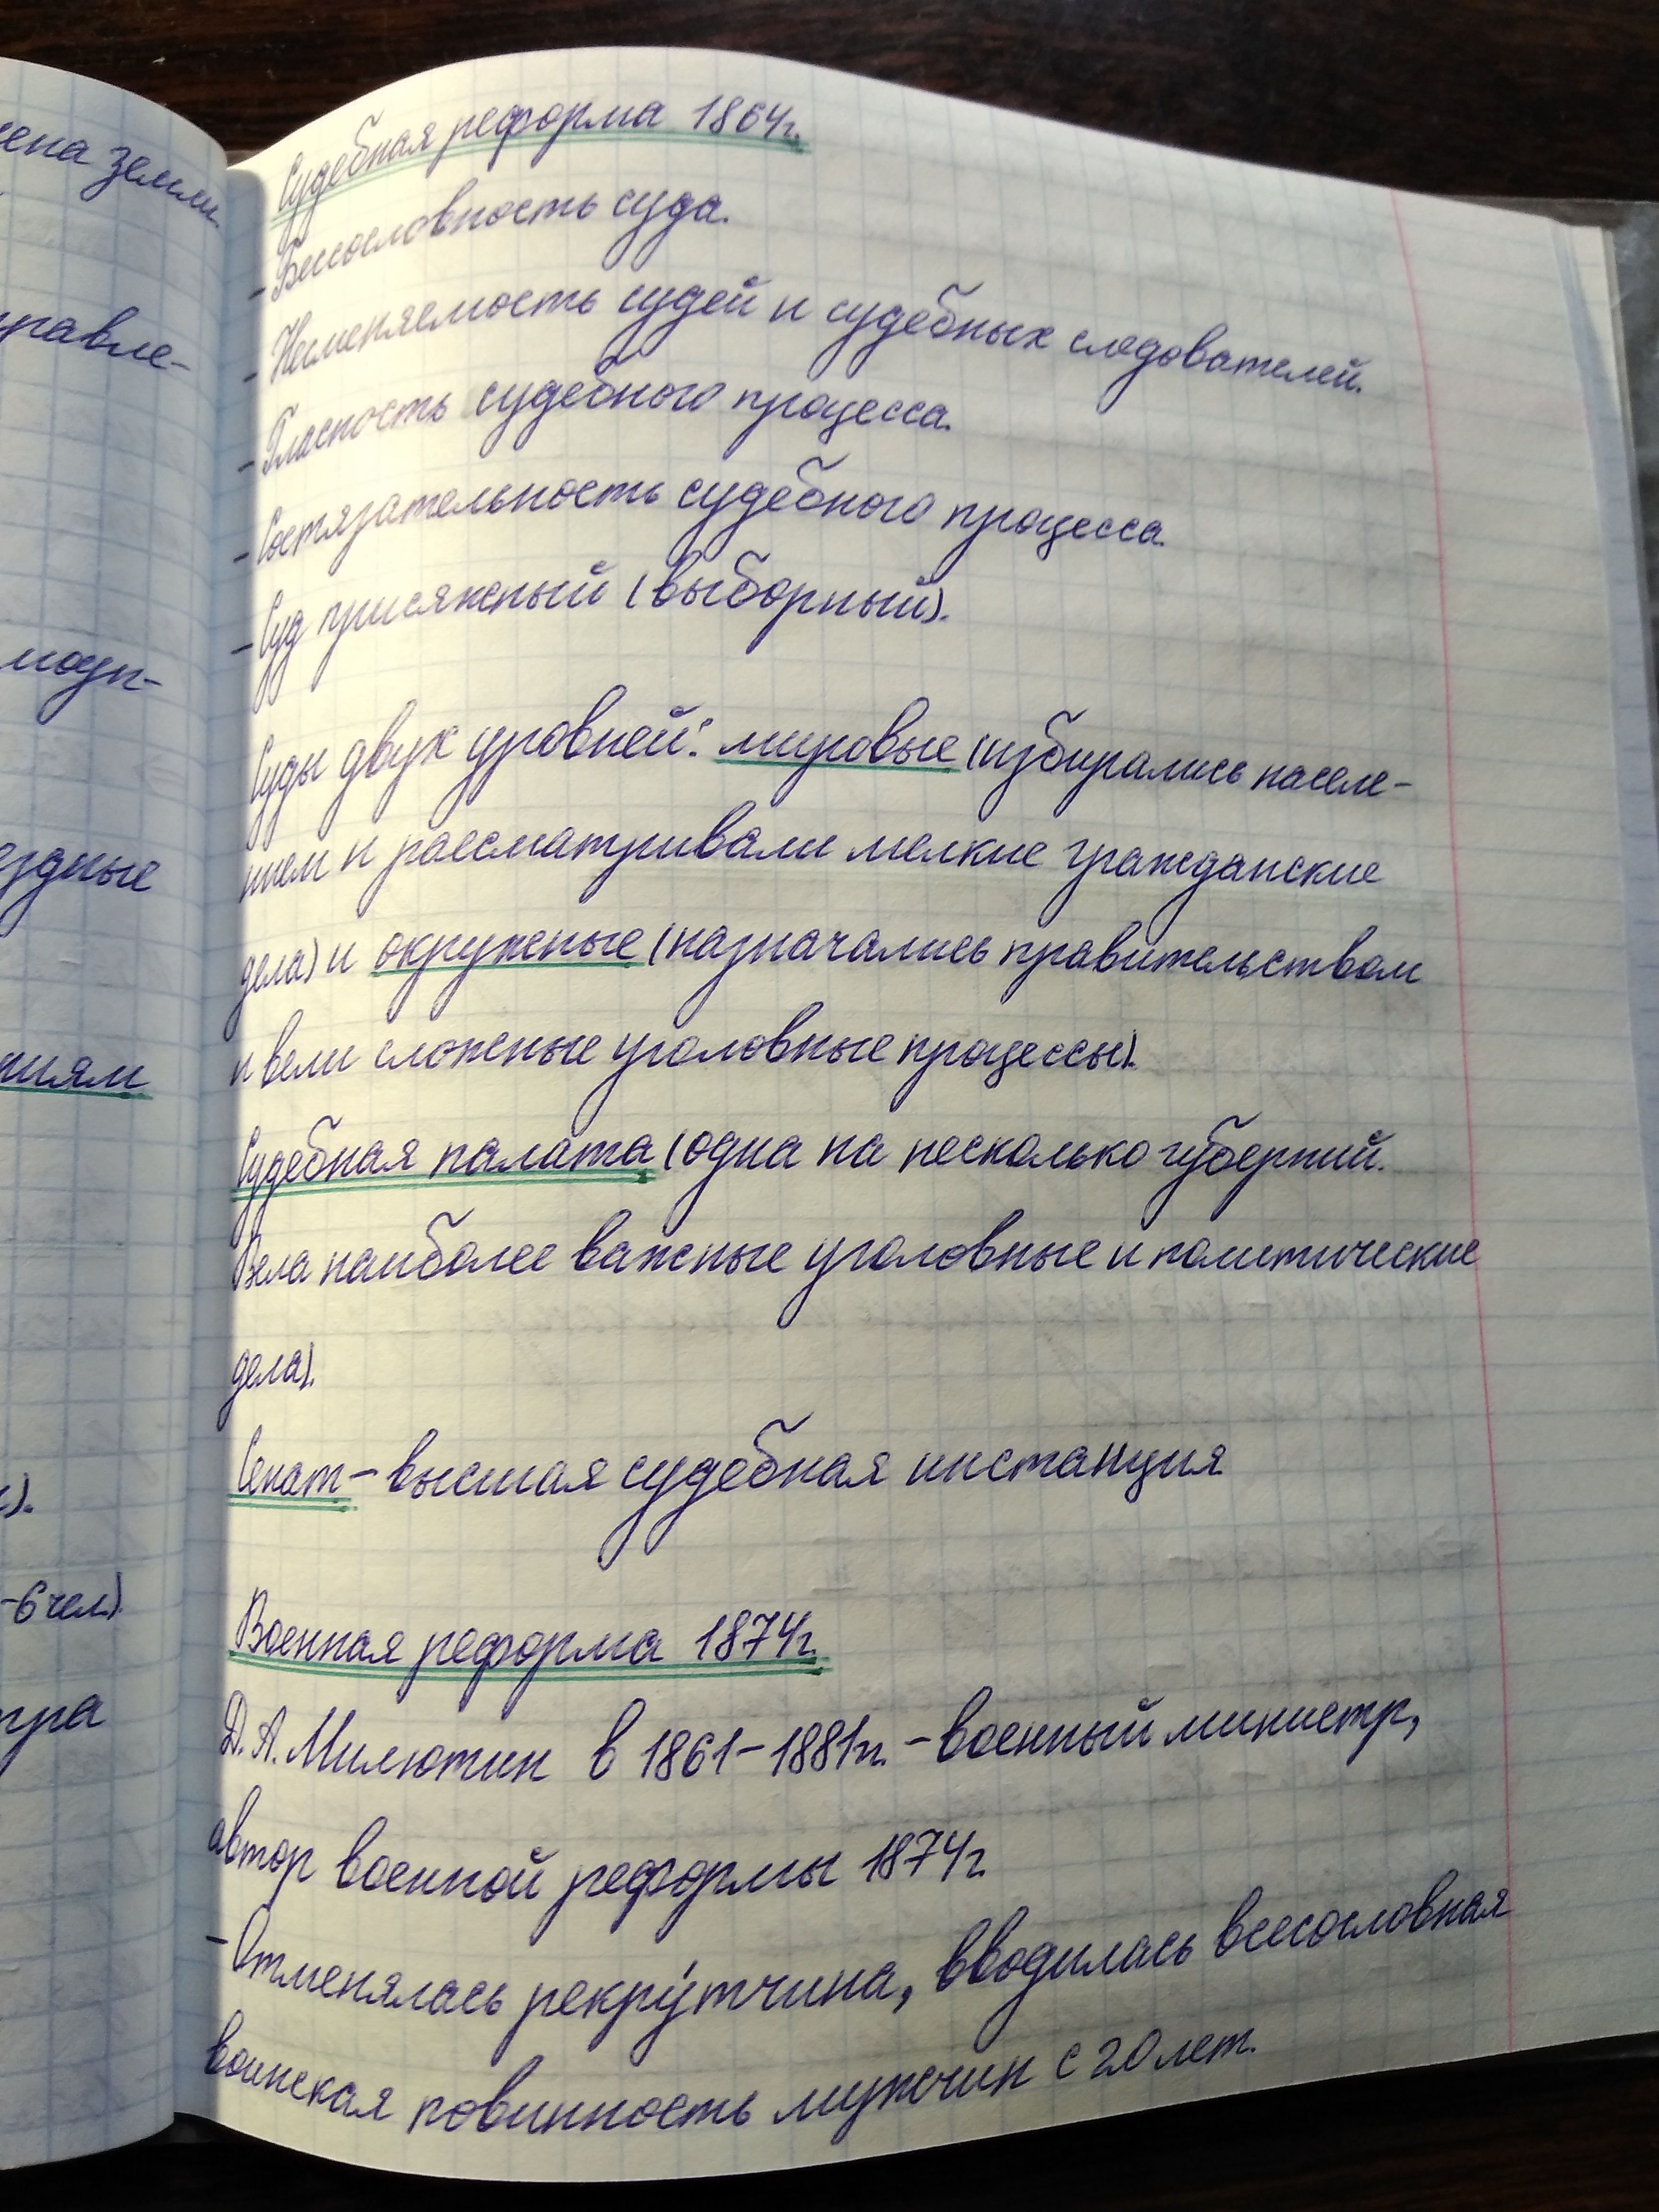 ена земли
правле-
ездные
ниям
).
-6 чел.)
тра
Судебная реформа 1864г.
- Бессословность суда.
- Несменяемость судей и судебных следователей.
- Гласность судебного процесса.
- Состязательность судебного процесса.
- Суд присяжный (выборный).
Суды двух уровней: мировые (избирались населе-
нием и рассматривали мелкие гражданские
дела) и окружные (назначались правительством
и вели сложные уголовные процессы).
Судебная палата (одна на несколько губерний.
Вела наиболее важные уголовные и политические
дела).
Сенат – высшая судебная инстанция
Военная реформа 1874г.
Д. А. Милютин в 1861-1881гг. – военный министр,
автор военной реформы 1874г.
- Отменялась рекру́тчина, вводилась всесословная
воинская повинность мужчин с 20 лет.